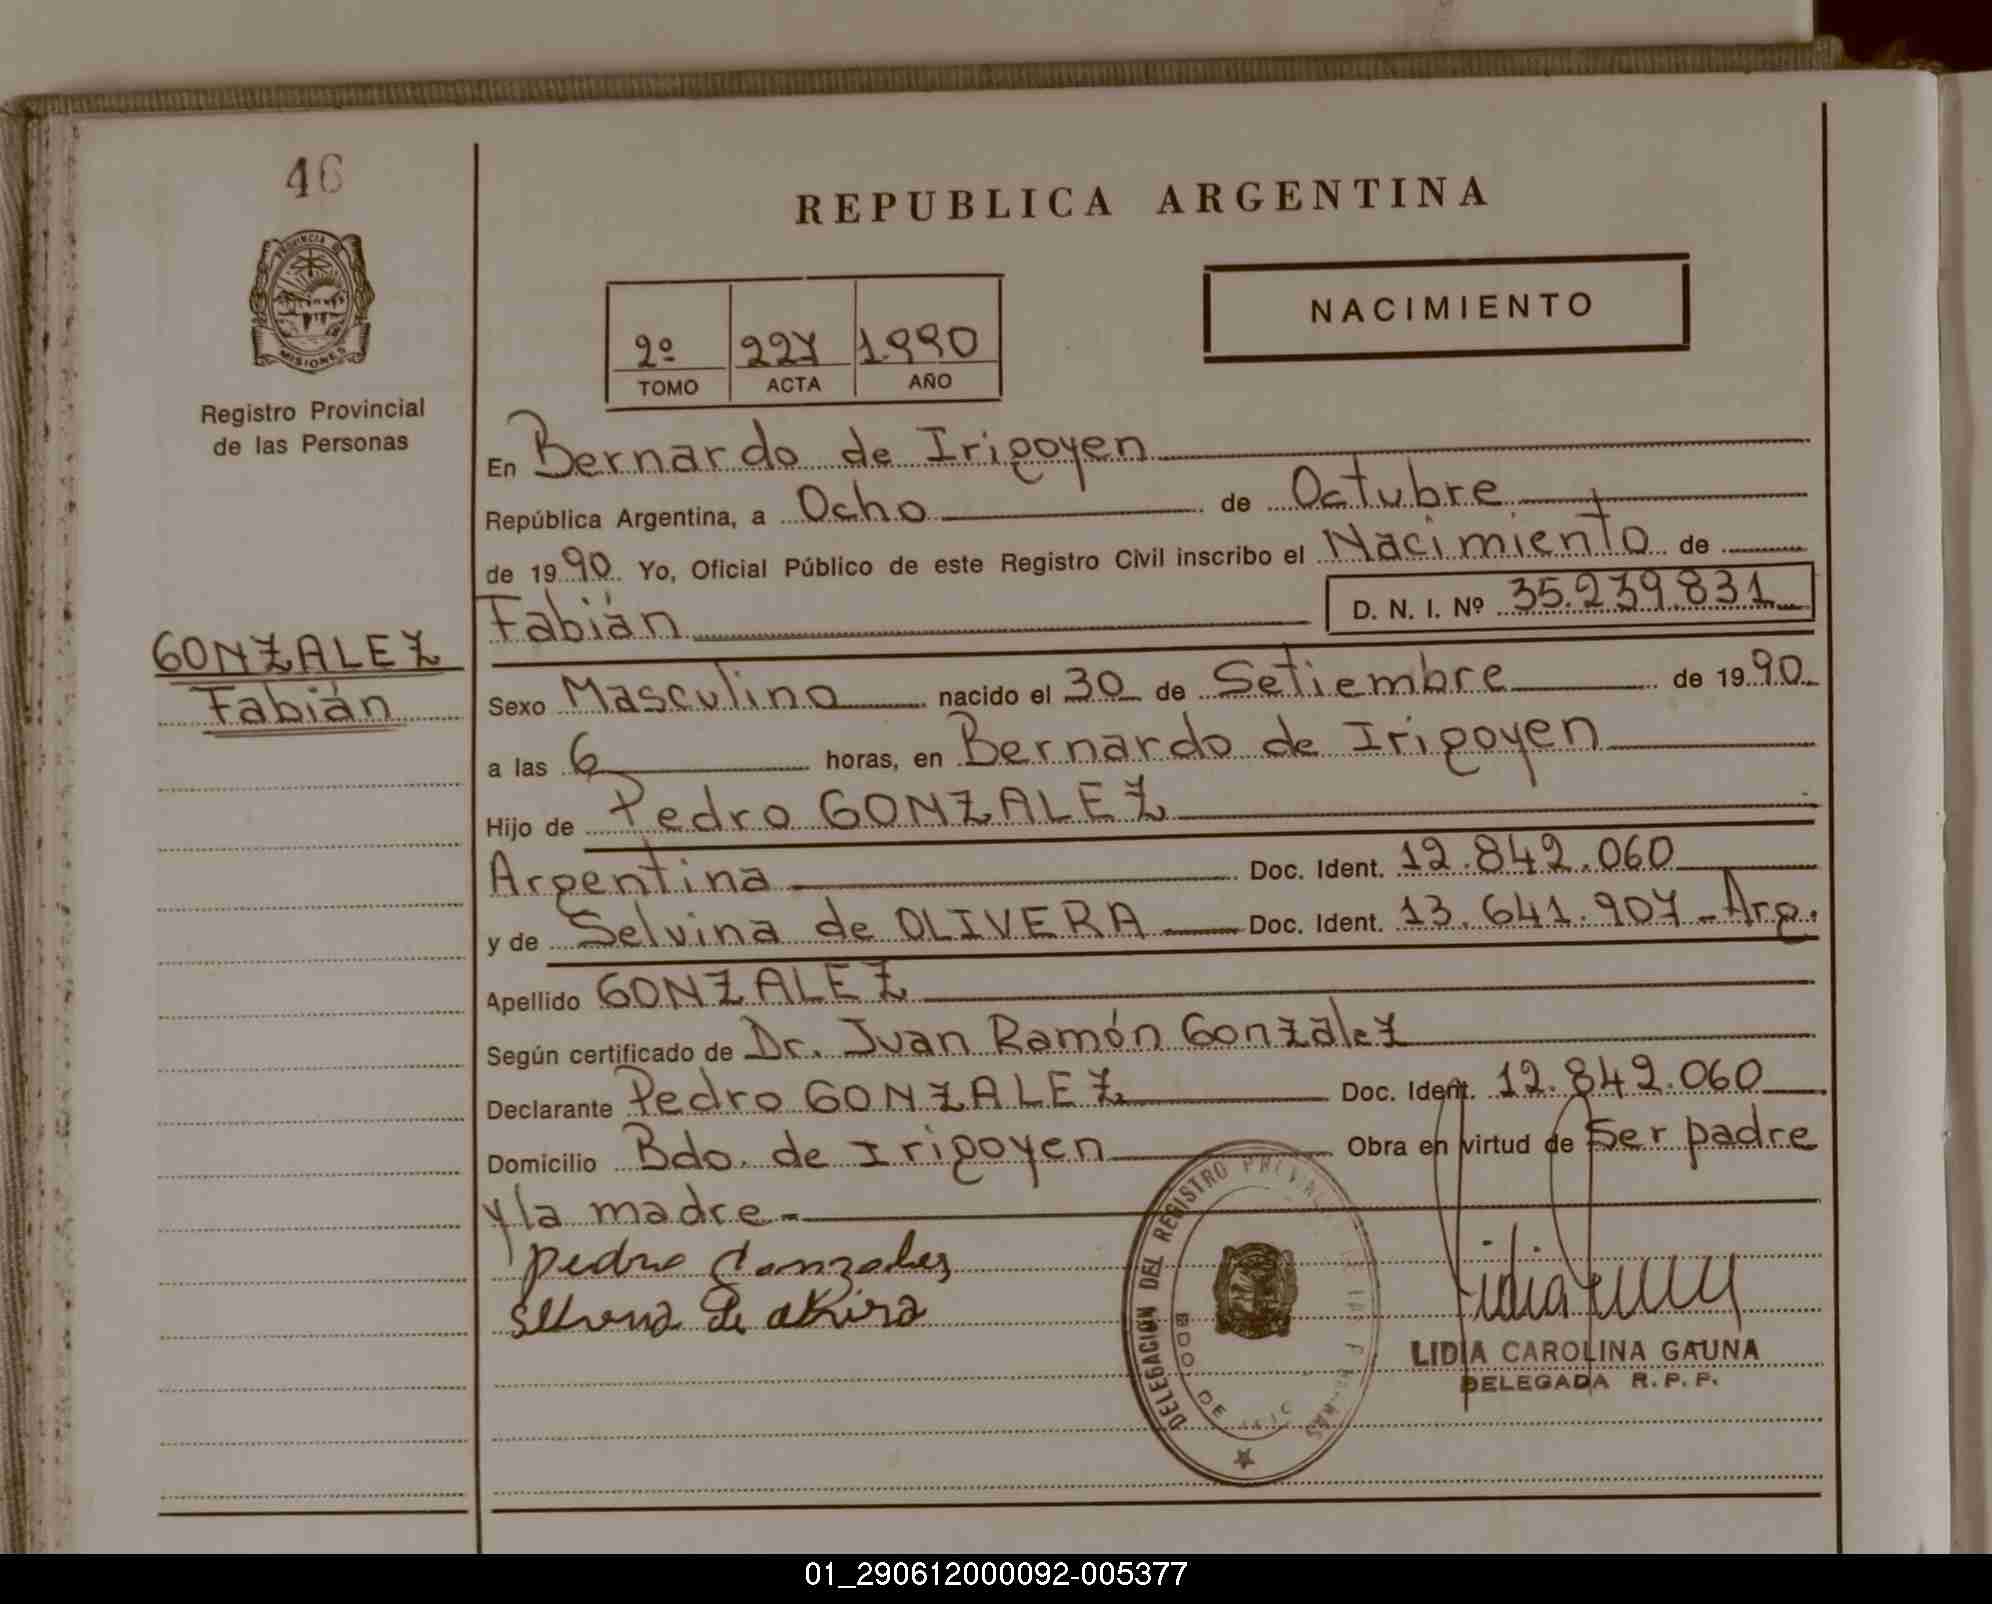 46
PROVINCIA D
MISIONES
Registro Provincial
de las Personas
GONZALEZ
Fabián
REPUBLICA ARGENTINA
NACIMIENTO
2º 227 1.990
TOMO ACTA AÑO
En Bernardo de Irigoyen
República Argentina, a Ocho de Octubre
de 1990 Yo, Oficial Público de este Registro Civil inscribo el Nacimiento de
Fabián D. N. I. Nº 35.239.831
Sexo Masculino nacido el 30 de Setiembre de 1990
a las 6 horas, en Bernardo de Irigoyen
Hijo de Pedro GONZALEZ
Argentina Doc. Ident. 12.842.060
y de Selvina de OLIVERA Doc. Ident. 13.641.907 - Arg.
Apellido GONZALEZ
Según certificado de Dr. Juan Ramón Gonzalez
Declarante Pedro GONZALEZ Doc. Ident. 12.842.060
Domicilio Bdo. de Irigoyen Obra en virtud de Ser padre
y la madre.-
Pedro Gonzalez
LIDIA CAROLINA GAUNA
DELEGADA R. P. P.
DELEGACION DEL REGISTRO
BDO DE
01_290612000092-005377